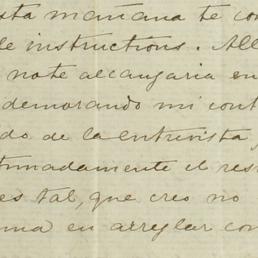 esta mañana te con
le instructions. All
note alcançaria en
demorando mi cont
do de la entrevista,
tunadamente el res
es tal, que creo no
una en arreglar con